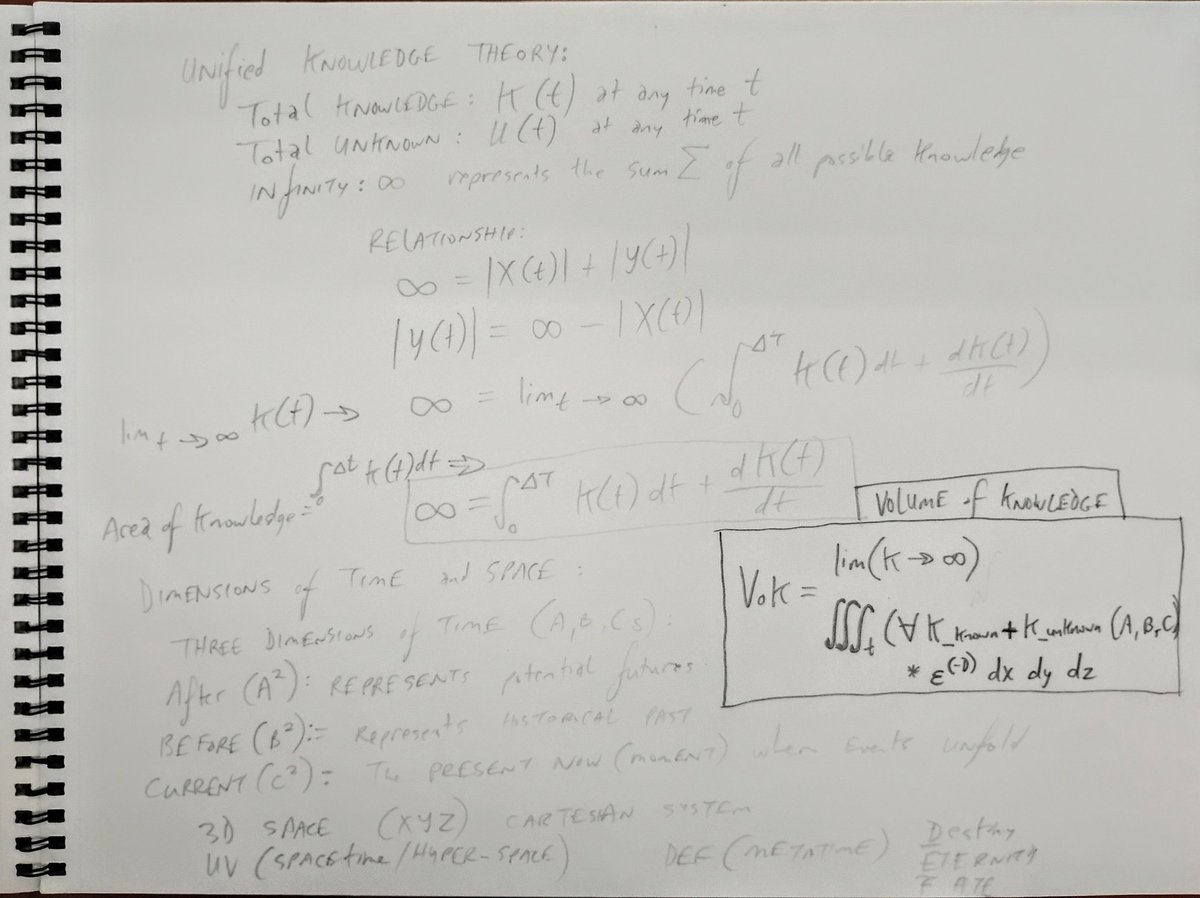 Unified KNOWLEDGE THEORY:
Total KNOWLEDGE: K(t) at any time t
Total UNKNOWN: U(t) at any time t
INfiNITY: ∞ represents the sum Σ of all possible knowledge
RELATIONSHIP:
∞ = |X(t)| + |Y(t)|
|Y(t)| = ∞ - |X(t)|
lim t→∞ K(t) → ∞ = lim t→∞ (∫₀^ΔT K(t) dt + dK(t)/dt)
Area of Knowledge = ∫₀^Δt K(t)dt ⇒
∞ = ∫₀^ΔT K(t) dt + dK(t)/dt
VOLUME of KNOWLEDGE
VoK = lim(K→∞)
∭t (∀ K_known + K_unknown (A, B, C)
* ε^(-D) dx dy dz
DIMENSIONS of TIME and SPACE:
THREE DIMENSIONS of TIME (A, B, Cs):
After (A²): REPRESENTS potential futures
BEFORE (B²):= Represents HISTORICAL PAST
CURRENT (C²): = The PRESENT NOW (moment) when Events unfold
3D SPACE (XYZ) CARTESIAN SYSTEM
UV (SPACEtime/HYPER-SPACE) DEF (METATIME) Destiny
ETERNITY
FATE